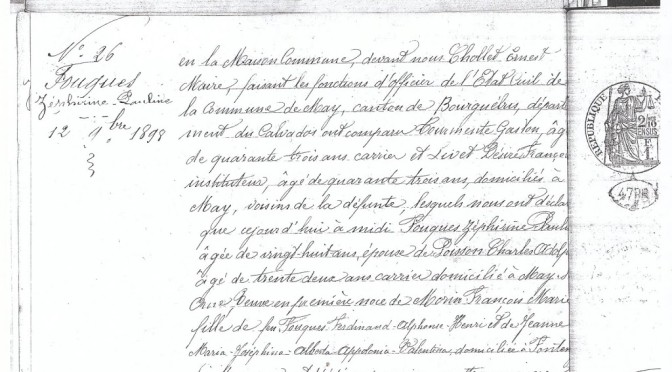 N° 26
Fouques
Zéphirine-Pauline
12 9bre 1898
en la Maison Commune, devant nous Chollet Ernest
Maire, faisant les fonctions d'officier de l'Etat Civil de
la Commune de May, canton de Bourguébus, départe
ment du Calvados ont comparu Tourmente Gaston, âg
de quarante trois ans carrier et Livet Désiré François
instituteur, âgé de quarante trois ans, domiciliés à
May, voisins de la défunte, lesquels nous ont décla
que cejourd'hui à midi Fouques Zéphirine-Paulin
âgée de vingt huit ans, épouse de Poisson Charles Adolp
âgé de trente deux ans carrier domicilié à May-s
Orne, Veuve en première noce de Morin François Marie
fille de feu Fouques Ferdinand-Alphonse-Henri et de Jeanne
Maria-Joséphina-Alberta-Appolonia-Valentina, domiciliée à Fonten
RÉPUBLIQUE
47RR